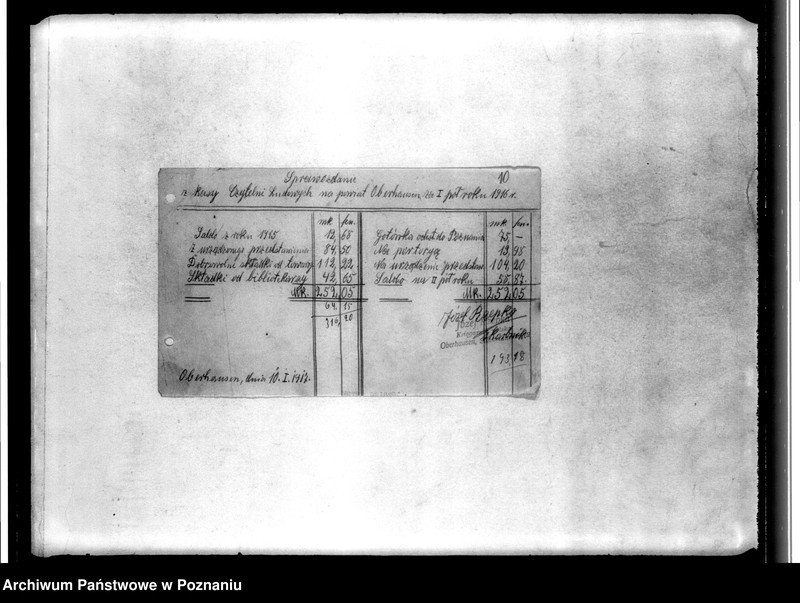 10
Sprawozdanie
z kasy Czytelni Ludowych na powiat Oberhausen za I półroku 1916 r.
mk. fen. mk. fen.
Saldo z roku 1915 12 68 Gotówka odesł. do Poznania 75 –
Z urządzonego przedstawienia 84 50 Na portorya 13 98
Dobrowolni składki od towarz. 112 22 Na urządzenie przedstaw. 104 20
Składki od bibliotekarzy 42 65 Saldo na II półroku 58 87
Mk. 252,05 Mk. 252,05
64 15
316,20
Józef Rzepka
Józef
Oberhausen,
Skarbnik
193 18
Oberhausen, dnia 10. I. 1917.
Archiwum Państwowe w Poznaniu